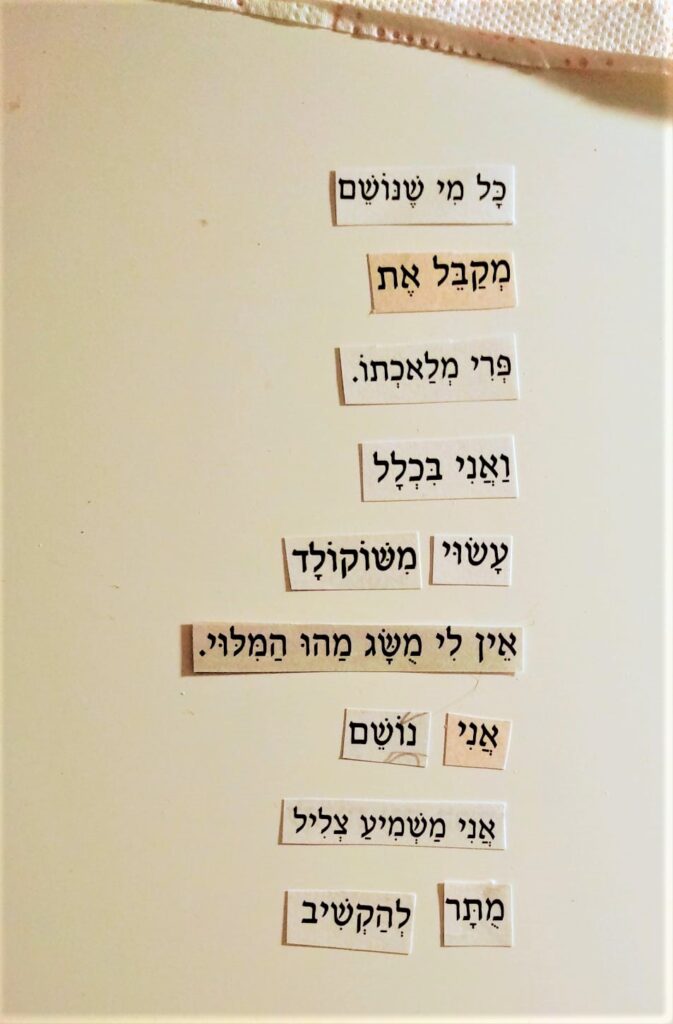 כָּל מִי שֶׁנּוֹשֵׁם
מְקַבֵּל אֶת
פְּרִי מְלַאכְתּוֹ.
וַאֲנִי בִּכְלָל
עָשׂוּי מִשּׁוֹקוֹלָד
אֵין לִי מֻשָּׂג מַהוּ הַמִּלּוּי.
אֲנִי נוֹשֵׁם
אֲנִי מַשְׁמִיעַ צְלִיל
מֻתָּר לְהַקְשִׁיב